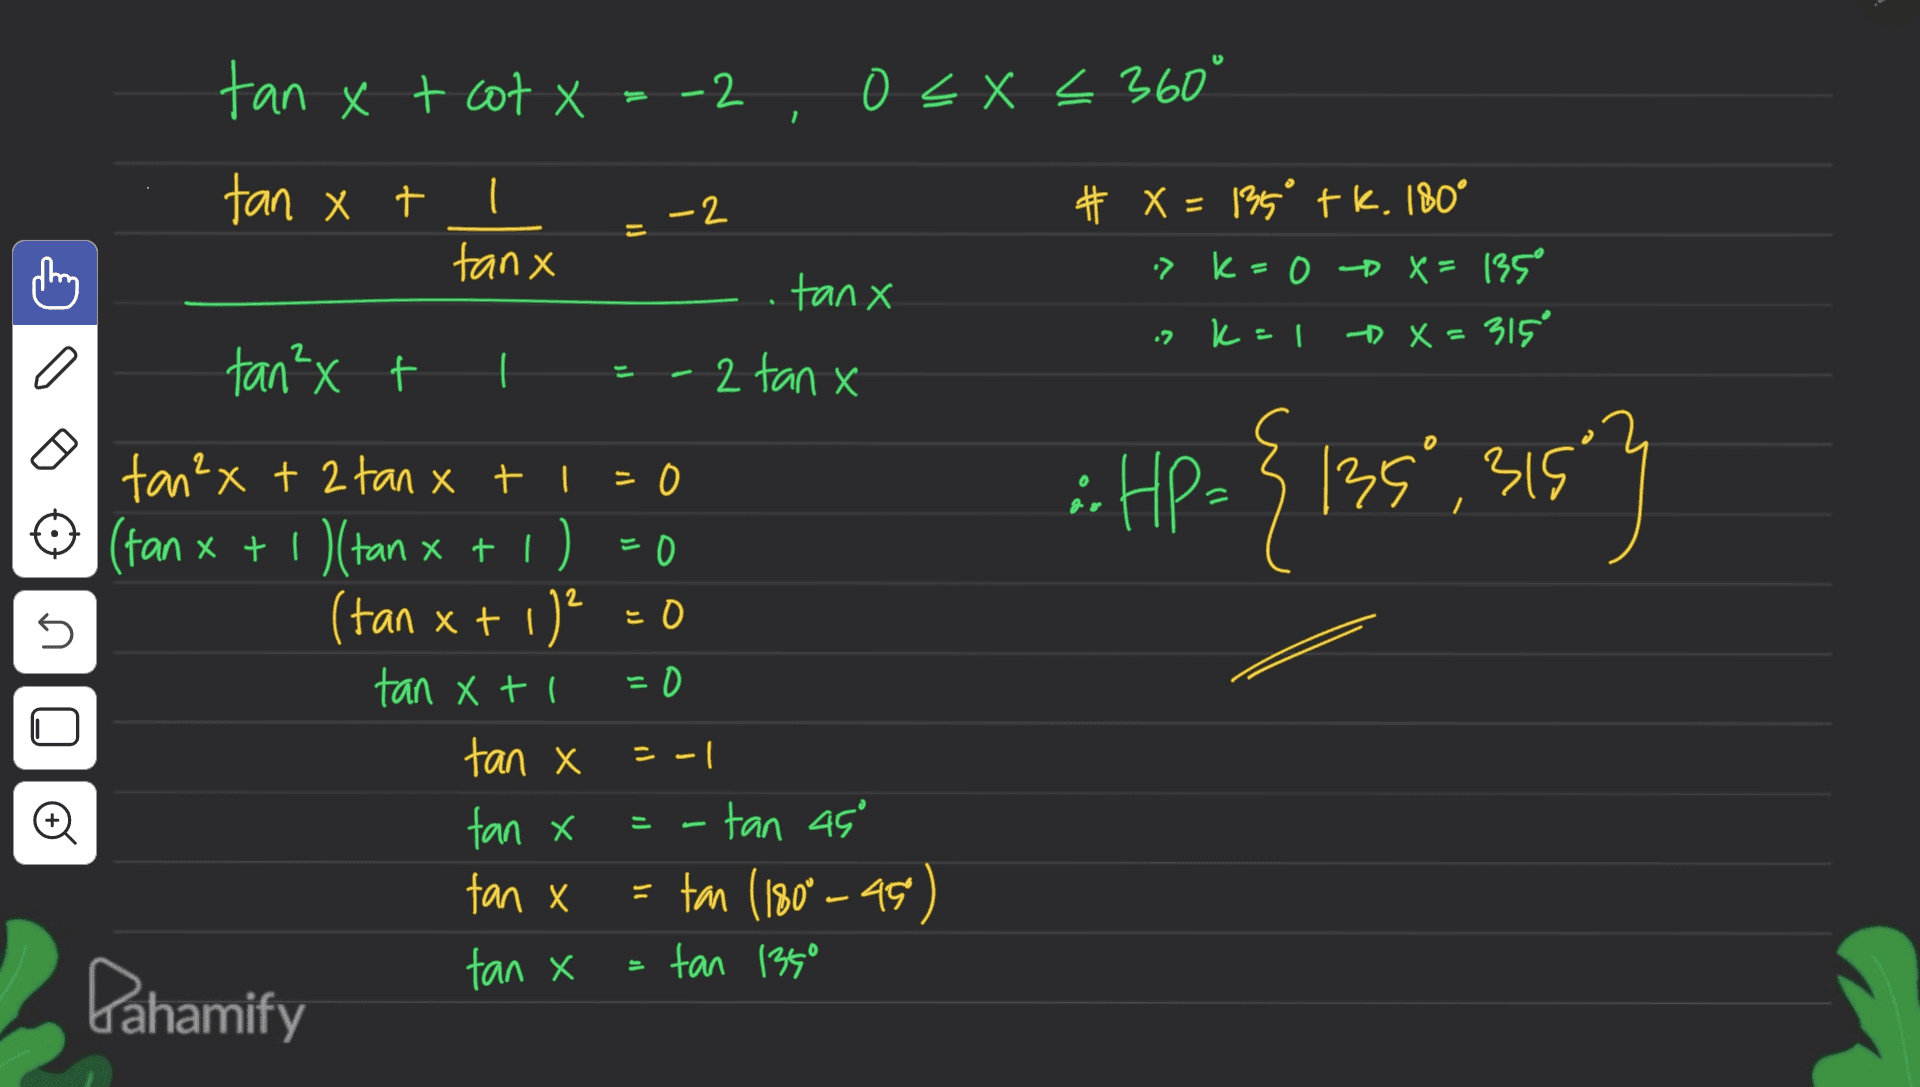 tan x + cot x = -2 , 0 ≤ x ≤ 360°
tan x + 1/tan x = -2
. tan x
tan²x + 1 = -2 tan x
tan²x + 2 tan x + 1 = 0
(tan x + 1)(tan x + 1) = 0
(tan x + 1)² = 0
tan x + 1 = 0
tan x = -1
tan x = - tan 45°
tan x = tan (180° - 45°)
tan x = tan 135°
# x = 135° + k. 180°
-> k = 0 → x = 135°
-> k = 1 → x = 315°
∴ HP = {135°, 315°}
Pahamify